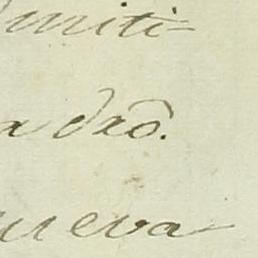 miti-
a dr̃o.
ueva